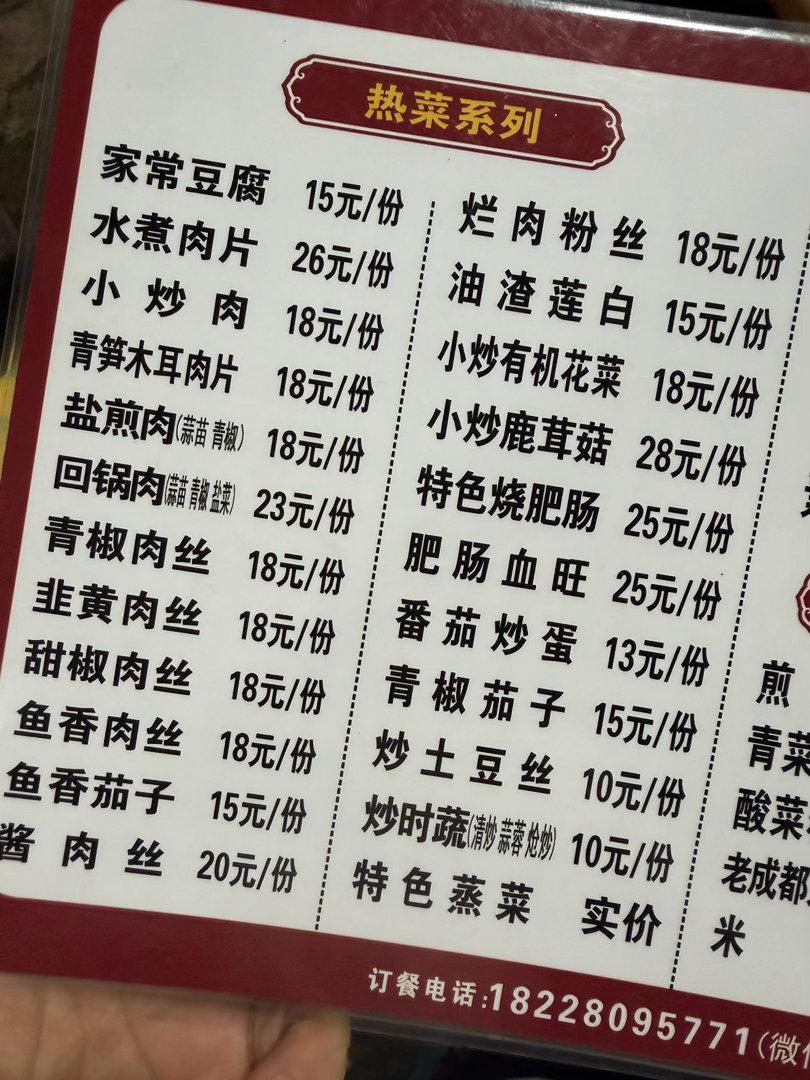 热菜系列
家常豆腐 15元/份
水煮肉片 26元/份
小炒肉 18元/份
青笋木耳肉片 18元/份
盐煎肉(蒜苗 青椒) 18元/份
回锅肉(蒜苗 青椒 盐菜) 23元/份
青椒肉丝 18元/份
韭黄肉丝 18元/份
甜椒肉丝 18元/份
鱼香肉丝 18元/份
鱼香茄子 15元/份
酱肉丝 20元/份
烂肉粉丝 18元/份
油渣莲白 15元/份
小炒有机花菜 18元/份
小炒鹿茸菇 28元/份
特色烧肥肠 25元/份
肥肠血旺 25元/份
番茄炒蛋 13元/份
青椒茄子 15元/份
炒土豆丝 10元/份
炒时蔬(清炒 蒜蓉 炝炒) 10元/份
特色蒸菜 实价
煎
青菜
酸菜
老成都
米
订餐电话:18228095771(微